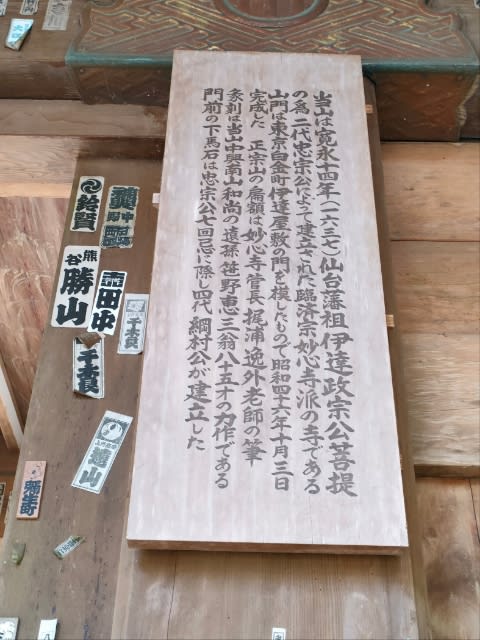 当山は寛永十四年(一六三七)仙台藩祖伊達政宗公菩提
の為二代忠宗公によって建立された臨済宗妙心寺派の寺である
山門は東京白金町伊達屋敷の門を模したもので昭和四十六年十月三日
完成した 正宗山の扁額は妙心寺管長梶浦逸外老師の筆
彖刻は当山中興南山和尚の遺孫笹野恵三翁八十五才の力作である
門前の下馬石は忠宗公七回忌に際し四代綱村公が建立した
給賢
熊谷
勝山
田中
千本良
千本良
遠山
弥生